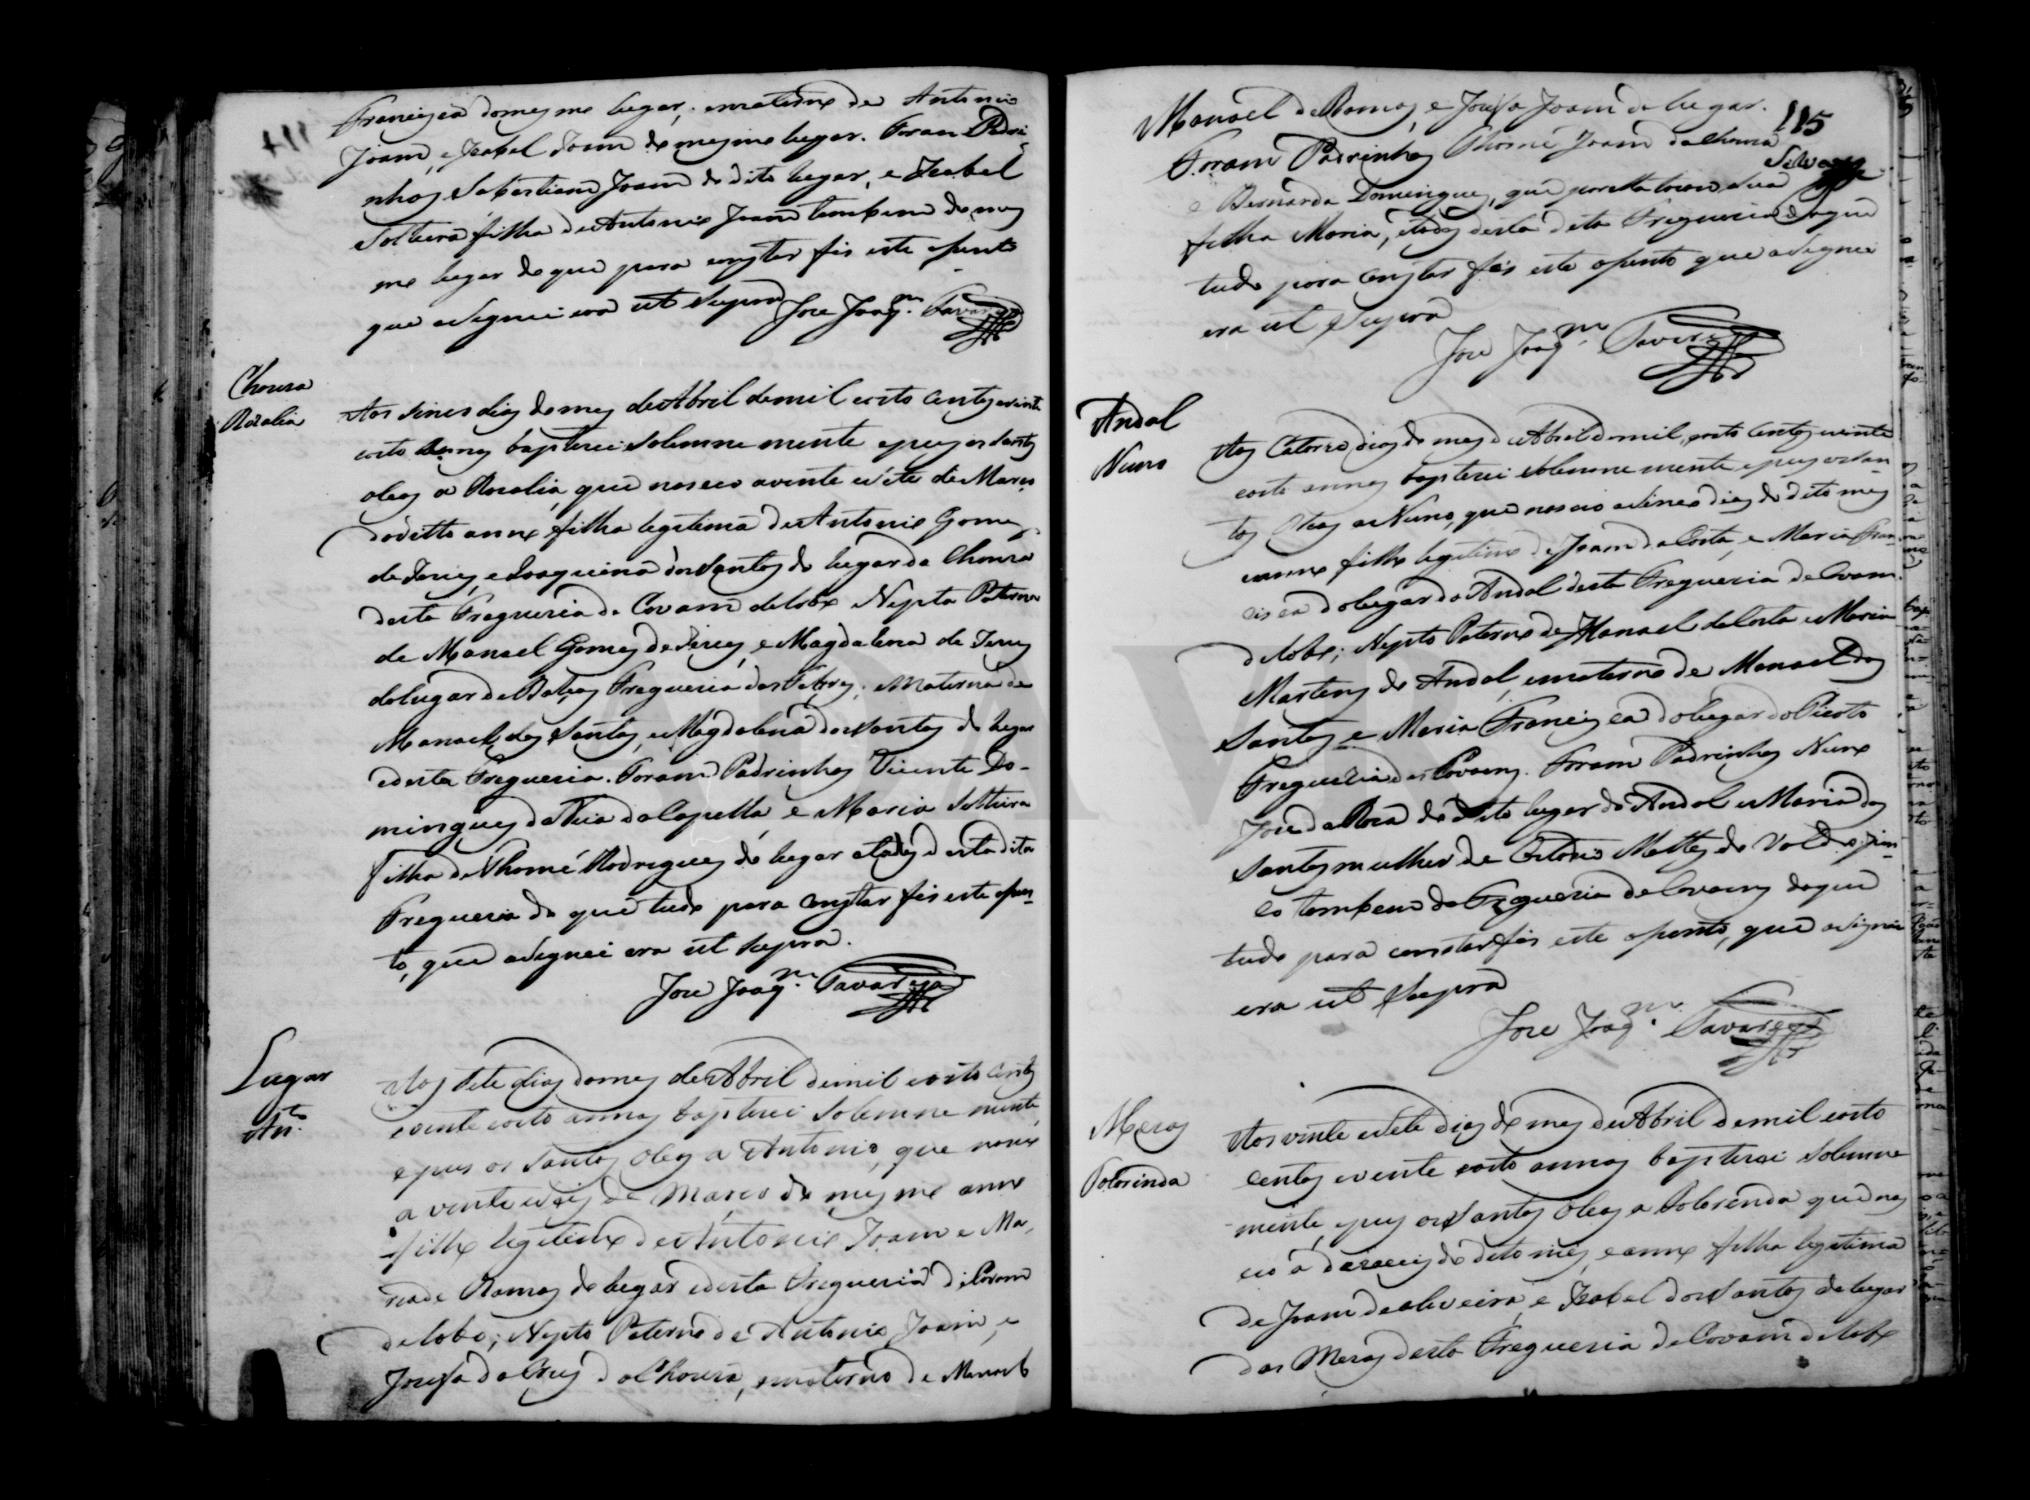 Francisca do mesmo lugar; e materno de Antonio
Joam, e Izabel Joam do mesmo lugar. Foram Padri-
nhos Sabastiam Joam do dito lugar, e Izabel
Solteira filha de Antonio Joam tambem do mes
mo lugar do que para constar fis este asento
que asignei era ut supra Joze Joaqm. Tavares
Choura
Rozalia
Aos sinco dias do mes de Abril de mil e oito centos e vinte
e oito annos baptizei solemne mente e pus os santos
oleos a Rozalia, que nasceo a vinte e sete de Março
do ditto anno, filha legitima de Antonio Gomes
de Piney, e Joaquina dos Santos do lugar da Choura
desta Freguezia de Covam de lobo Nepta Paterna
de Manoel Gomes de e Magdalena de
do lugar de Freguezia das Febres; e Materna de
Manoel dos Santos, e Magdalena dos Santos do lugar
e desta Freguezia. Foram Padrinhos Vicente Do-
mingues da Rua da Capella, e Maria Solteira
Filha de Thomé Rodrigues do lugar e todos desta dita
Freguezia do que tudo para constar fis este asen-
to, que asignei era ut supra.
Joze Joaqm. Tavares
Lugar
Anto.
Aos sete dias do mes de Abril de mil e oito centos
e vinte e oito annos baptizei solemne mente,
e pus os santos oleos a Antonio, que nasceo
a vinte e seis de Março do mesmo anno
filho legitimo de Antonio Joam e Ma-
ria de Ramos do lugar e desta Freguezia de Covam
de lobo; Nepto Paterno de Antonio Joam, e
Josefa da Crus da Choura, e materno de Manoel
Manoel de Ramos, e Josefa Joam do lugar.
115
Foram Padrinhos Thomé Joam da Choura
Silva
e Bernarda Domingues, que por ella tocou sua
filha Maria, e todos desta dita Freguezia do que
tudo para constar fis este asento que asignei
era ut supra
Joze Joaqm. Tavares
Andal
Nuno
Aos Catorze dias do mes de Abril de mil, e oito centos e vinte
e oito annos baptizei solemne mente e pus os san-
tos Oleos a Nuno, que nasceo a sinco dias do dito mes
e anno filho legitimo de Joam da Costa, e Maria Fran-
cisca do lugar do Andal desta Freguezia de Covam
de lobo; Nepto Paterno de Manoel da Costa e Maria
Martins do Andal, e materno de Manoel dos
Santos e Maria Francisca do lugar do
Freguezia dos Covoens. Foram Padrinhos Nuno
Joze da Roza do dito lugar do Andal e Maria dos
Santos mulher de Mattos do Val
tambem da Freguezia de Covoens do que
tudo para constar fis este asento, que asignei
era ut supra
Joze Joaqm. Tavares
Mezas
Folorinda
Aos vinte e sete dias do mes de Abril de mil e oito
centos e vinte e oito annos baptizei solemne
mente, e pus os santos oleos a Folorinda que nas
ceo a dezaseis do dito mes, e anno filha legitima
de Joam de oliveira, e Izabel dos Santos do lugar
das Mezas desta Freguezia de Covam de lobo